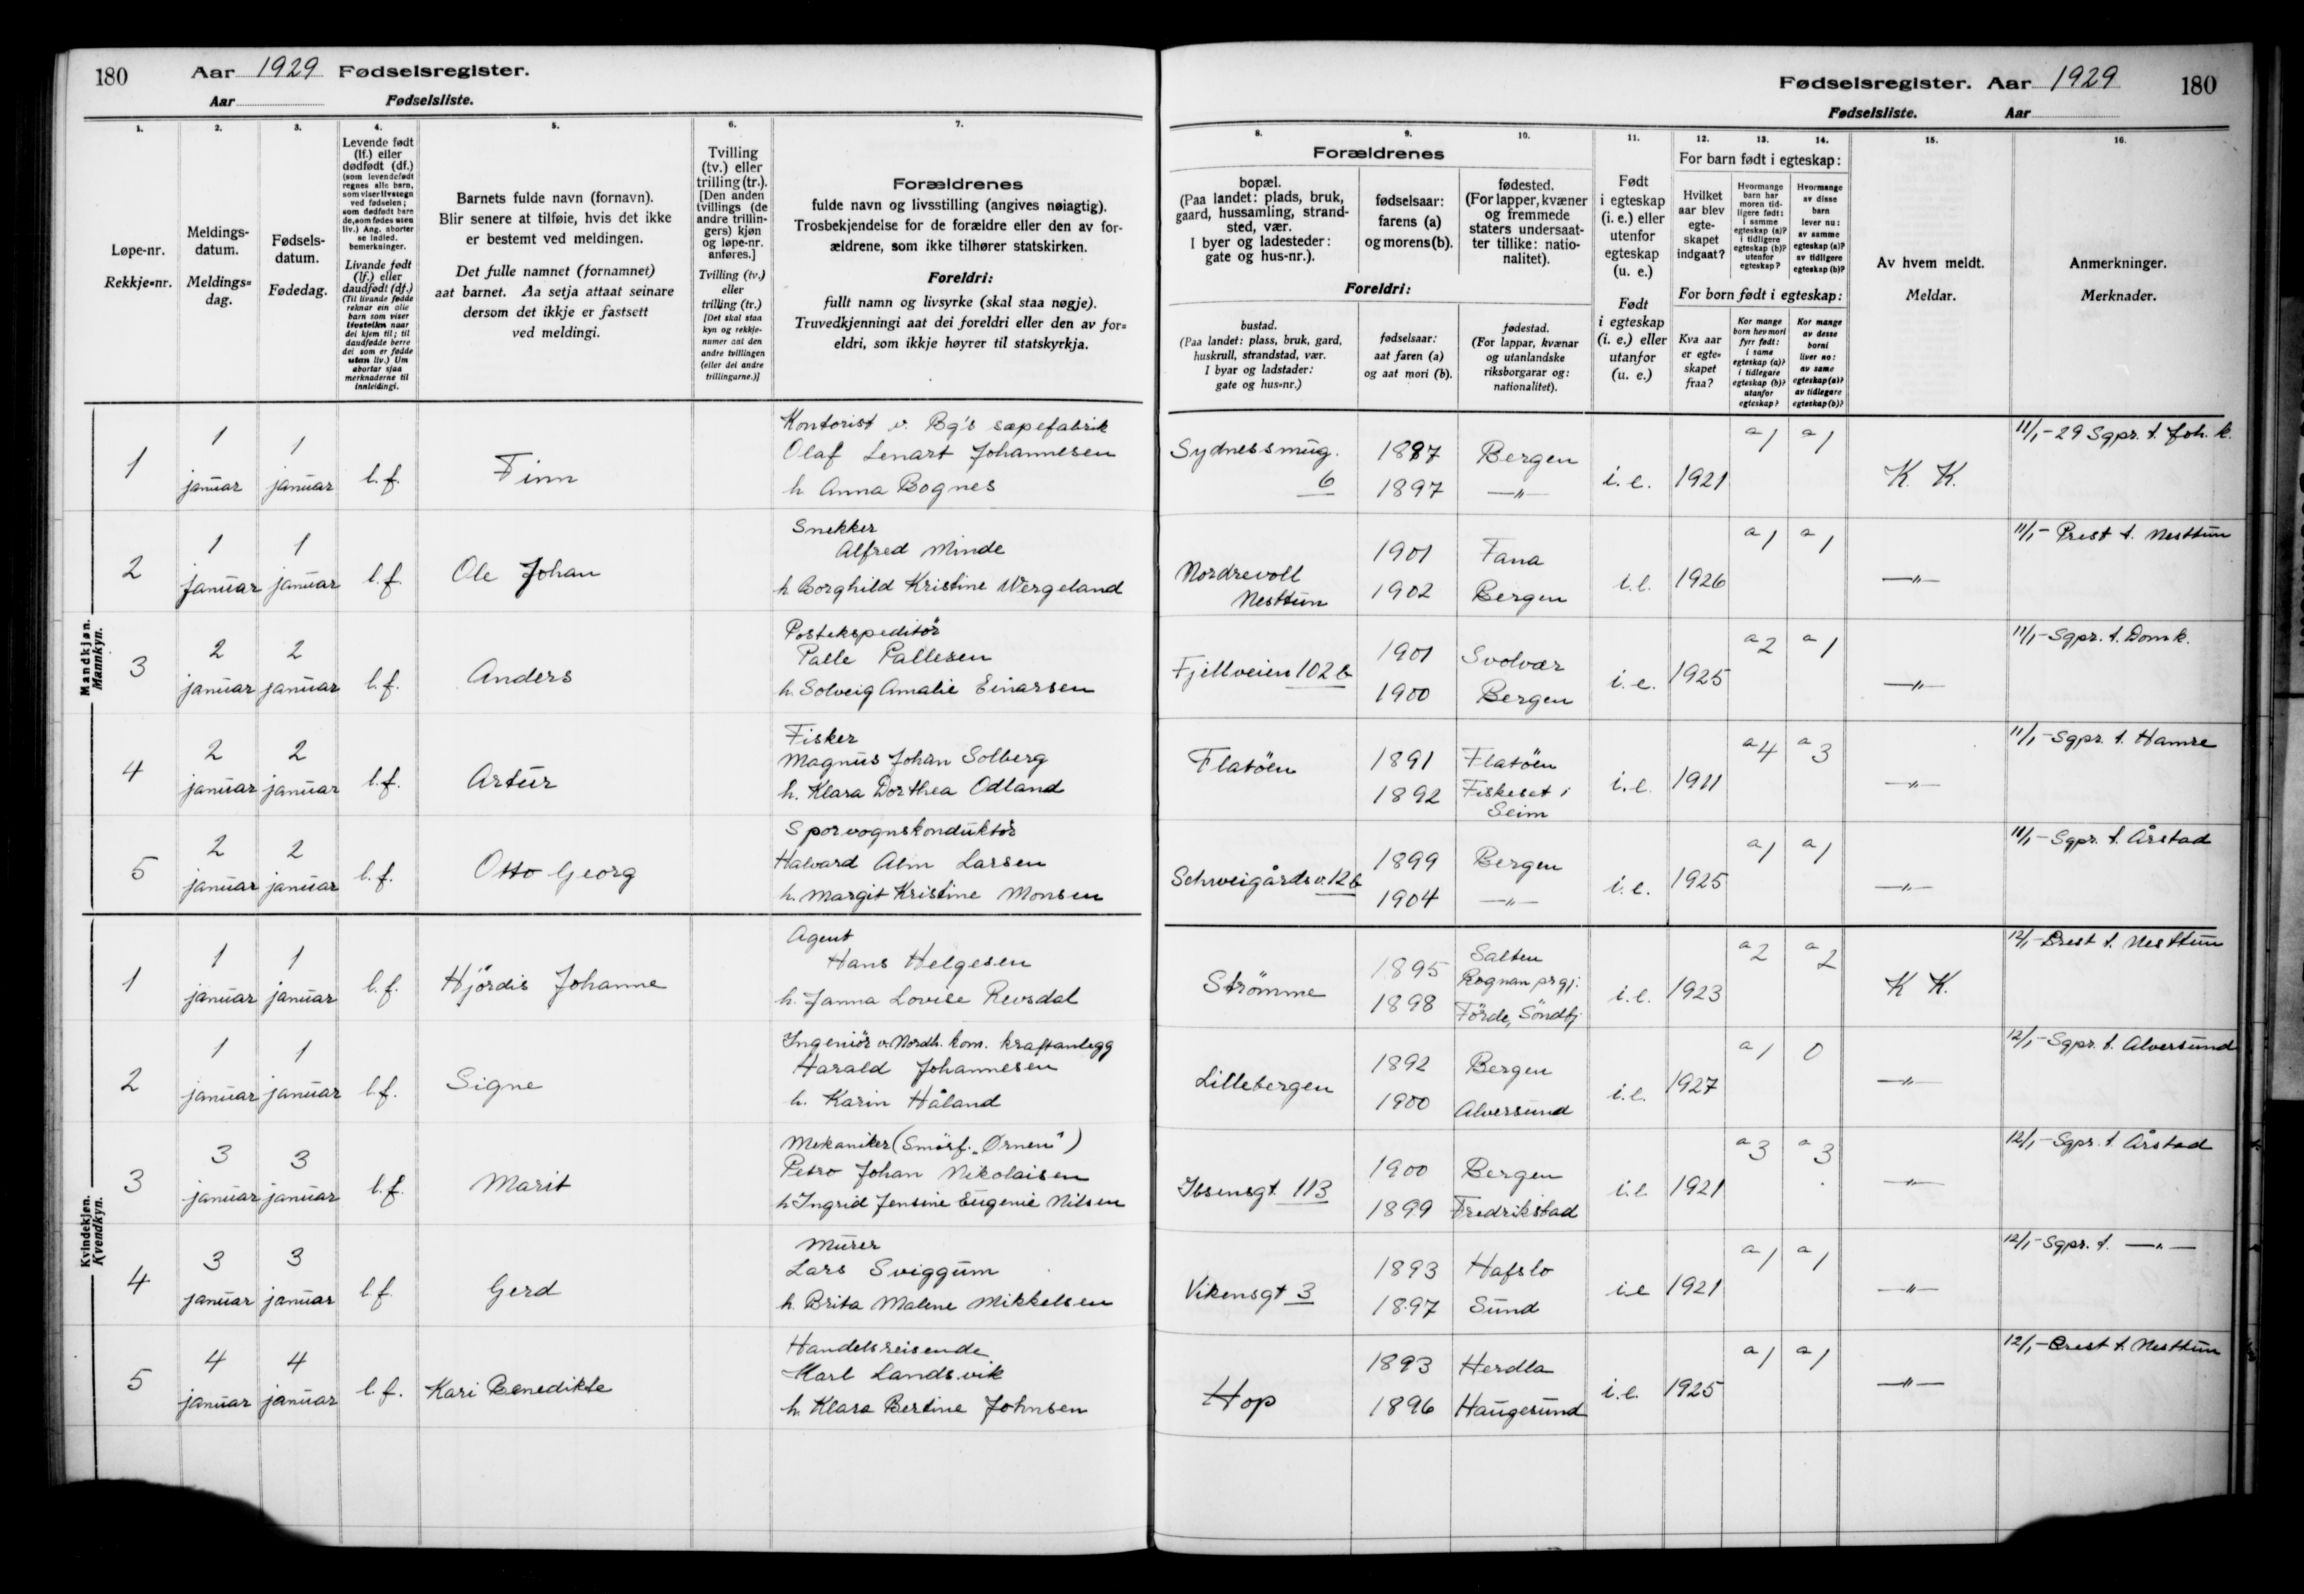 180 Aar 1929 Fødselsregister.
Aar Fødselsliste.
Fødselsregister. Aar 1929 180
Fødselsliste. Aar
1.
Løpe-nr.
Rekkje-nr.
2.
Meldings-
datum.
Meldings-
dag.
3.
Fødsels-
datum.
Fødedag.
4.
Levende født
(lf.) eller
dødfødt (df.)
(som levendefødt
regnes alle barn,
som viser livstegn
ved fødselen;
som dødfødt bare
de, som fødes uten
liv.) Ang. aborter
se indled.
bemerkninger.
Livande født
(lf.) eller
daudfødt (df.)
(Til livande fødde
reknar ein olie
barn som viser
livsteikn naar
dei kjem til; til
daudfødde berre
dei som er fødde
utan liv.) Um
abortar sjaa
merknaderne til
innleidingi.
5.
Barnets fulde navn (fornavn).
Blir senere at tilføie, hvis det ikke
er bestemt ved meldingen.
Det fulle namnet (fornamnet)
aat barnet. Aa setja attaat seinare
dersom det ikkje er fastsett
ved meldingi.
6.
Tvilling
(tv.) eller
trilling (tr.).
[Den anden
tvillings (de
andre trillin-
gers) kjøn
og løpe-nr.
anføres.]
Tvilling (tv.)
eller
trilling (tr.)
[Det skal staa
kyn og rekkje-
numer aat den
andre tvillingen
(eller dei andre
trillingarne.)]
7.
Forældrenes
fulde navn og livsstilling (angives nøiagtig).
Trosbekjendelse for de forældre eller den av for-
ældrene, som ikke tilhører statskirken.
Foreldri:
fullt namn og livsyrke (skal staa nøgje).
Truvedkjenningi aat dei foreldri eller den av for-
eldri, som ikkje høyrer til statskyrkja.
Forældrenes
8.
bopæl.
(Paa landet: plads, bruk,
gaard, hussamling, strand-
sted, vær.
I byer og ladesteder:
gate og hus-nr.).
9.
fødselsaar:
farens (a)
og morens (b).
10.
fødested.
(For lapper, kvæner
og fremmede
staters undersaat-
ter tillike: natio-
nalitet).
Foreldri:
bustad.
(Paa landet: plass, bruk, gard,
huskrull, strandstad, vær.
I byar og ladstader:
gate og hus-nr.)
fødselsaar:
aat faren (a)
og aat mori (b).
fødestad.
(For lappar, kvænar
og utanlandske
riksborgarar og:
nationalitet).
11.
Født
i egteskap
(i. e.) eller
utenfor
egteskap
(u. e.)
Født
i egteskap
(i. e.) eller
utanfor
(u. e.)
12. 13. 14.
For barn født i egteskap:
Hvilket
aar blev
egte-
skapet
indgaat?
Hvormange
barn har
moren tid-
ligere født:
i samme
egteskap (a)?
i tidligere
egteskap (b)?
utenfor
egteskap?
Hvormange
av disse
barn
lever nu:
av samme
egteskap (a)?
av tidligere
egteskap (b)?
For born født i egteskap:
Kva aar
er egte-
skapet
fraa?
Kor mange
born hev mori
fyrr født:
i same
egteskap (a)?
i tidlegare
egteskap (b)?
utanfor
egteskap?
Kor mange
av desse
borni
liver no:
av same
egteskap (a)?
av tidlegare
egteskap (b)?
15.
Av hvem meldt.
Meldar.
16.
Anmerkninger.
Merknader.
Mandkjøn.
Mannkyn.
1 1 januar 1 januar l.f. Finn
Kontorist v. Bg's sæpefabrik
Olaf Lenart Johannesen
h Anna Bognes
Sydnessmug. 6 1897 Bergen
1897 —"— i.e. 1921 a 1 a 1 K. K. 11/1-29 Sgpr. t. Joh. k.
2 1 januar 1 januar l.f. Ole Johan
Snekker
Alfred Minde
h Borghild Kristine Wergeland
Nordrevoll Nesttun 1901 Fana
1902 Bergen i.e. 1926 a 1 a 1 —"— 11/1- Prest t. Nesttun
3 2 januar 2 januar l.f. Anders
Postekspeditör
Palle Pallesen
h. Solveig Amalie Einarsen
Fjellveien 102 b 1901 Svolvær
1900 Bergen i.e. 1925 a 2 a 1 —"— 11/1- Sgpr. t. Domk.
4 2 januar 2 januar l.f. Artur
Fisker
Magnus Johan Solberg
h. Klara Dorthea Odland
Flatöen 1891 Flatöen
1892 Fiskeset i Seim i.e. 1911 a 4 a 3 —"— 11/1- Sgpr. t. Hamre
5 2 januar 2 januar l.f. Otto Georg
Sporvognskonduktör
Halvard Alm Larsen
h. Margit Kristine Monsen
Schweigårdsv. 12 b 1899 Bergen
1904 —"— i.e. 1925 a 1 a 1 —"— 11/1- Sgpr. t. Årstad
Kvindekjøn.
Kvendkyn.
1 1 januar 1 januar l.f. Hjördis Johanne
Agent
Hans Helgesen
h. Janna Lovise Revsdal
Strömme 1895 Salten Rognan prgj.
1898 Förde, Söndfj i.e. 1923 a 2 a 2 K K. 12/1- Prest t. Nesttun
2 1 januar 1 januar l.f. Signe
Ingeniör v. Nordh. kom. kraftanlegg
Harald Johannesen
h. Karin Håland
Lillebergen 1892 Bergen
1900 Alversund i.e. 1927 a 1 0 —"— 12/1- Sgpr. t. Alversund
3 3 januar 3 januar l.f. Marit
Mekaniker (Smörf. „Ørnen")
Petro Johan Nikolaisen
h Ingrid Jensine Eugenie Nilsen
Ibsensgt. 113 1900 Bergen
1899 Fredrikstad i.e. 1921 a 3 a 3 —"— 12/1- Sgpr. t. Årstad
4 3 januar 3 januar l.f. Gerd
Murer
Lars Sviggum
h. Brita Malene Mikkelsen
Vikensgt 3 1893 Hafslo
1897 Sund i.e 1921 a 1 a 1 —"— 12/1- Sgpr. t. —"—
5 4 januar 4 januar l.f. Kari Benedikte
Handelsreisende
Karl Landsvik
h. Klara Bertine Johnsen
Hop 1893 Herdla
1896 Haugesund i.e. 1925 a 1 a 1 —"— 12/1- Prest t. Nesttun